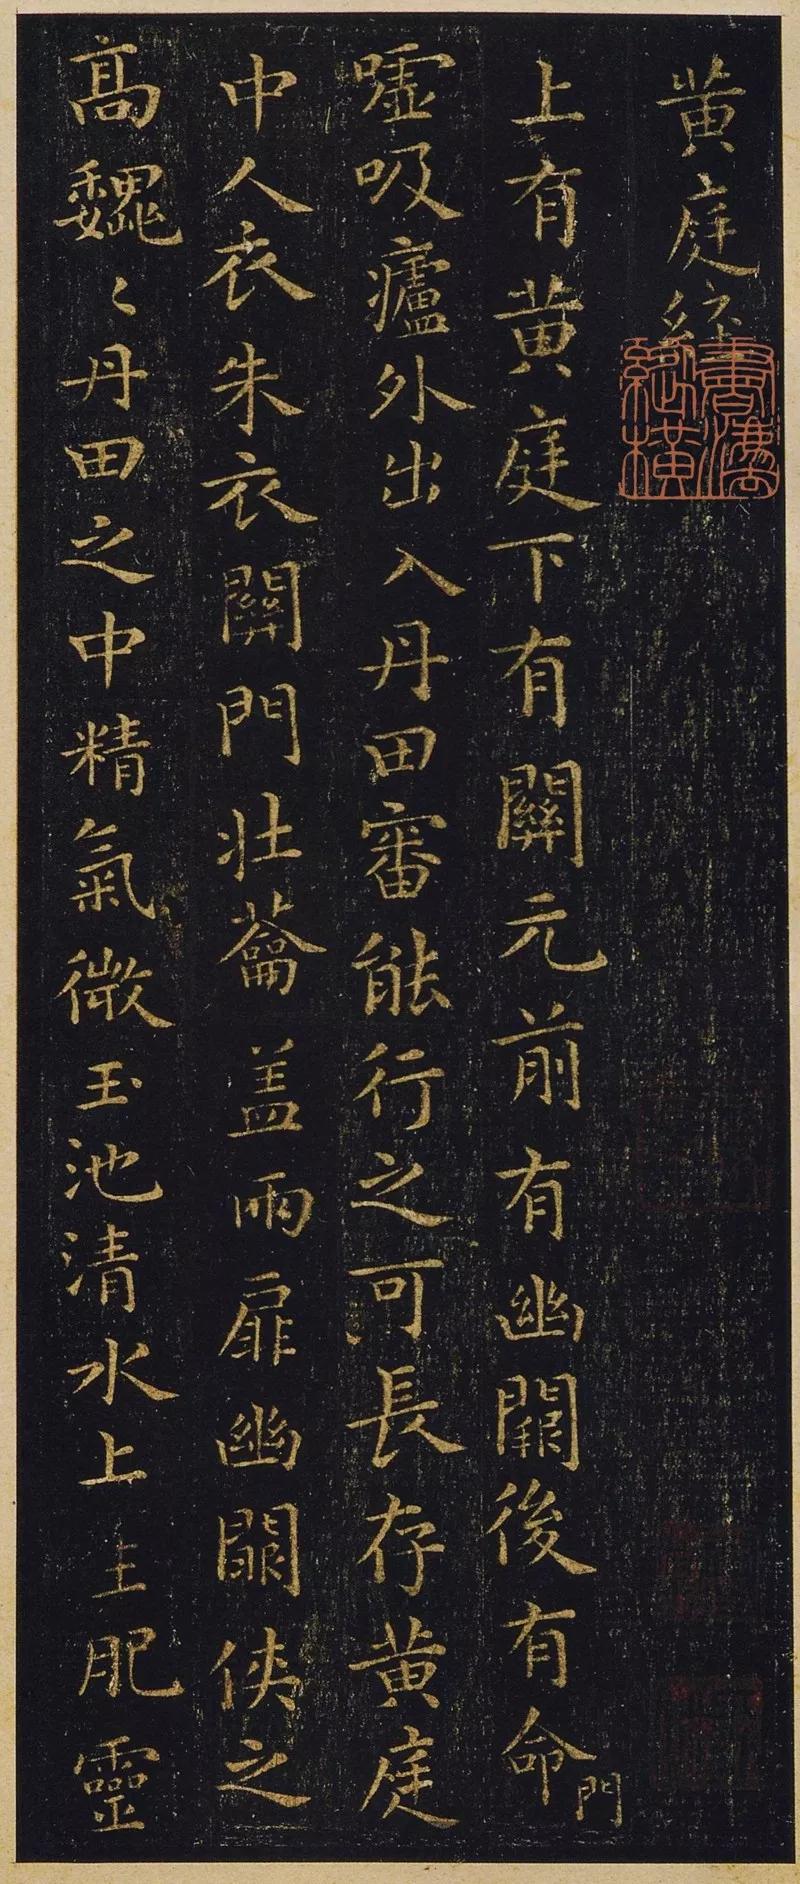 黃庭經
上有黃庭下有關元前有幽闕後有命門
噓吸廬外出入丹田審能行之可長存黃庭
中人衣朱衣關門壯蘥盖兩扉幽闕俠之
高巍〻丹田之中精氣微玉池清水上生肥靈
書漢縱橫